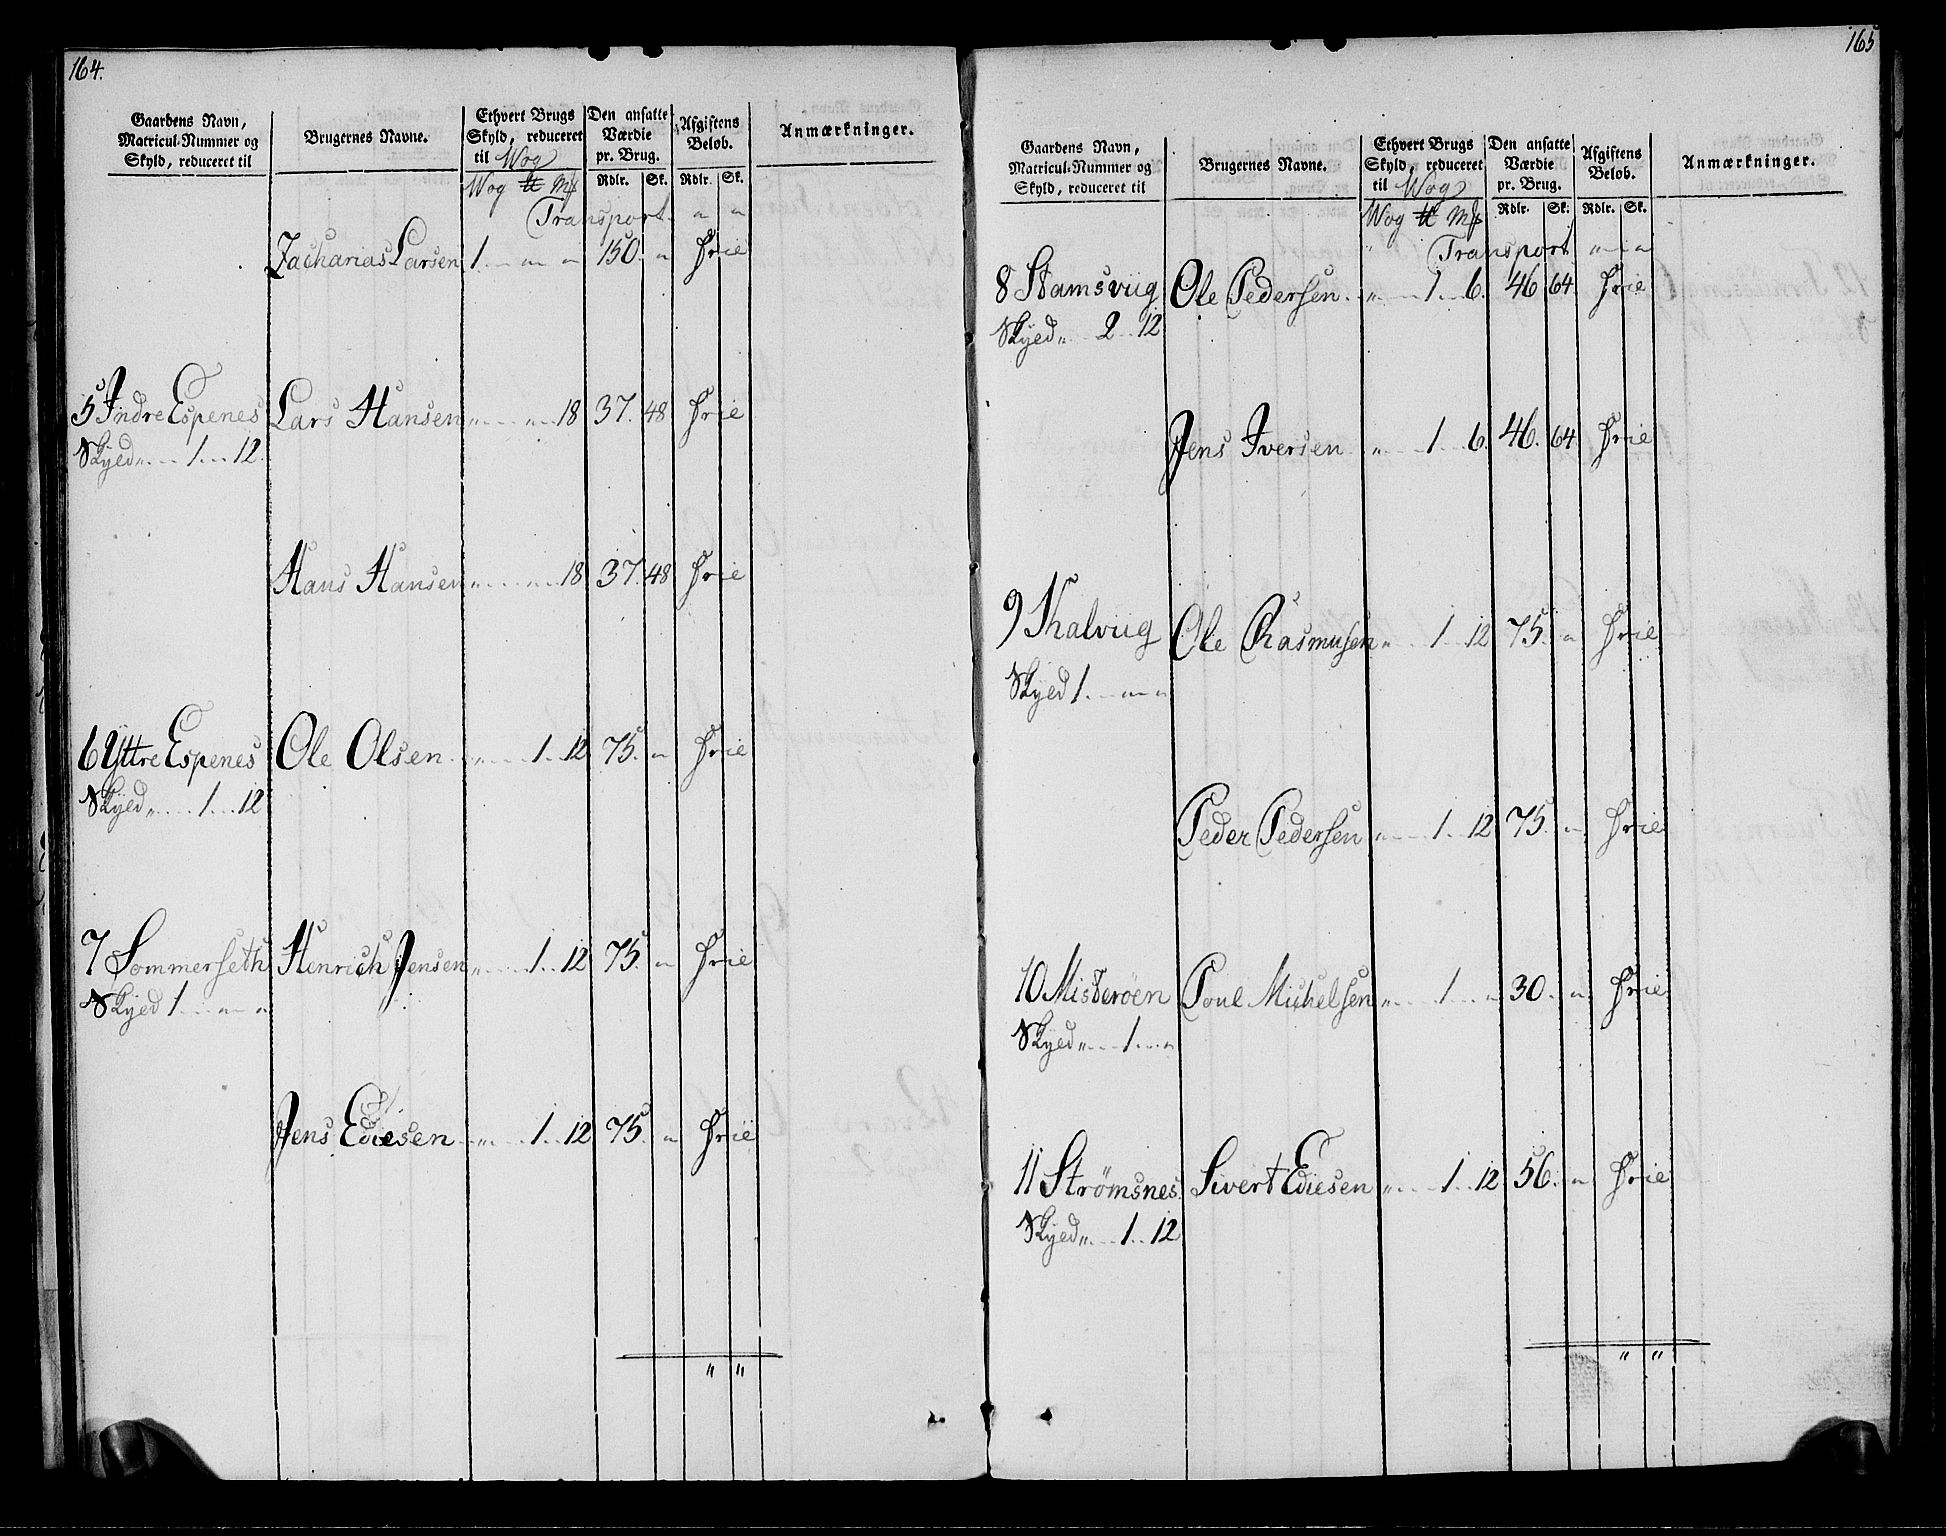 164.
Gaardens Navn, Matricul-Nummer og Skyld, reduceret til
Brugernes Navne.
Ethvert Brugs Skyld, reduceret til Wog
Den ansatte Værdie pr. Brug.
Afgiftens Beløb.
Anmærkninger.
Wog ℔ Mk Rdlr. Sk. Rdlr. Sk.
Transport. " "
Zacharias Larsen 1 " " 150. " Frie
5 Indre Espenes Lars Hansen " " 18 37. 48 Frie
Skyld " 1 12.
Hans Hansen " " 18 37. 48 Frie
6 Yttre Espenes Ole Olsen " 1 12 75. " Frie
Skyld " 1 12
7 Sommerseth Henrich Jensen " 1 12 75. " Frie
Skyld 1 " "
Jens Ediesen " 1 12 75. " Frie
" "
165
Gaardens Navn, Matricul-Nummer og Skyld, reduceret til
Brugernes Navne.
Ethvert Brugs Skyld, reduceret til Wog
Den ansatte Værdie pr. Brug.
Afgiftens Beløb.
Anmærkninger.
Wog ℔ Mk Rdlr. Sk. Rdlr. Sk.
Transport " "
8 Stamsviig Ole Pedersen " 1 6. 46 64 Frie
Skyld " 2 12
Jens Iversen " 1 6. 46. 64 Frie
9 Thalviig Ole Rasmusen " 1 12 75. " Frie
Skyld 1 " "
Peder Pedersen " 1 12 75. " Frie
10 Misterøen Poul Michelsen " 1 " 30. " Frie
Skyld " 1 "
11 Strømsnes Sivert Ediesen " 1 12 56. " Frie
Skyld " 1 12
" "